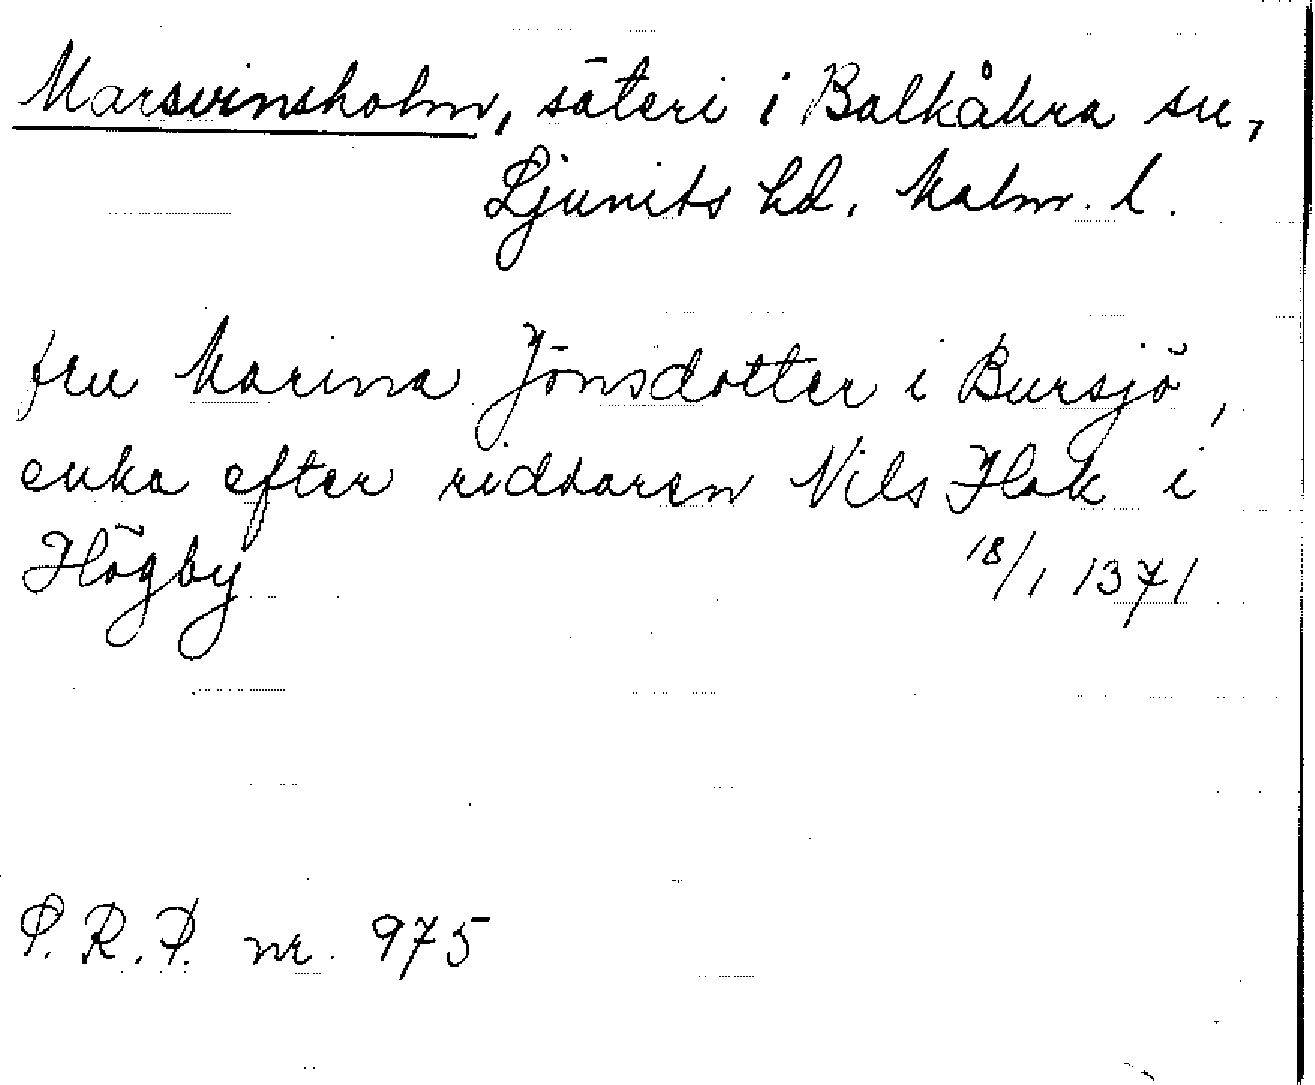 Marsvinsholm, säteri i Balkåkra sn,
Ljunits hd. Malm. l.
fru Marina Jönsdotter i Bursjö,
enka efter riddaren Nils Hak i
Högby 18/1 1371
P.R.P. nr. 975